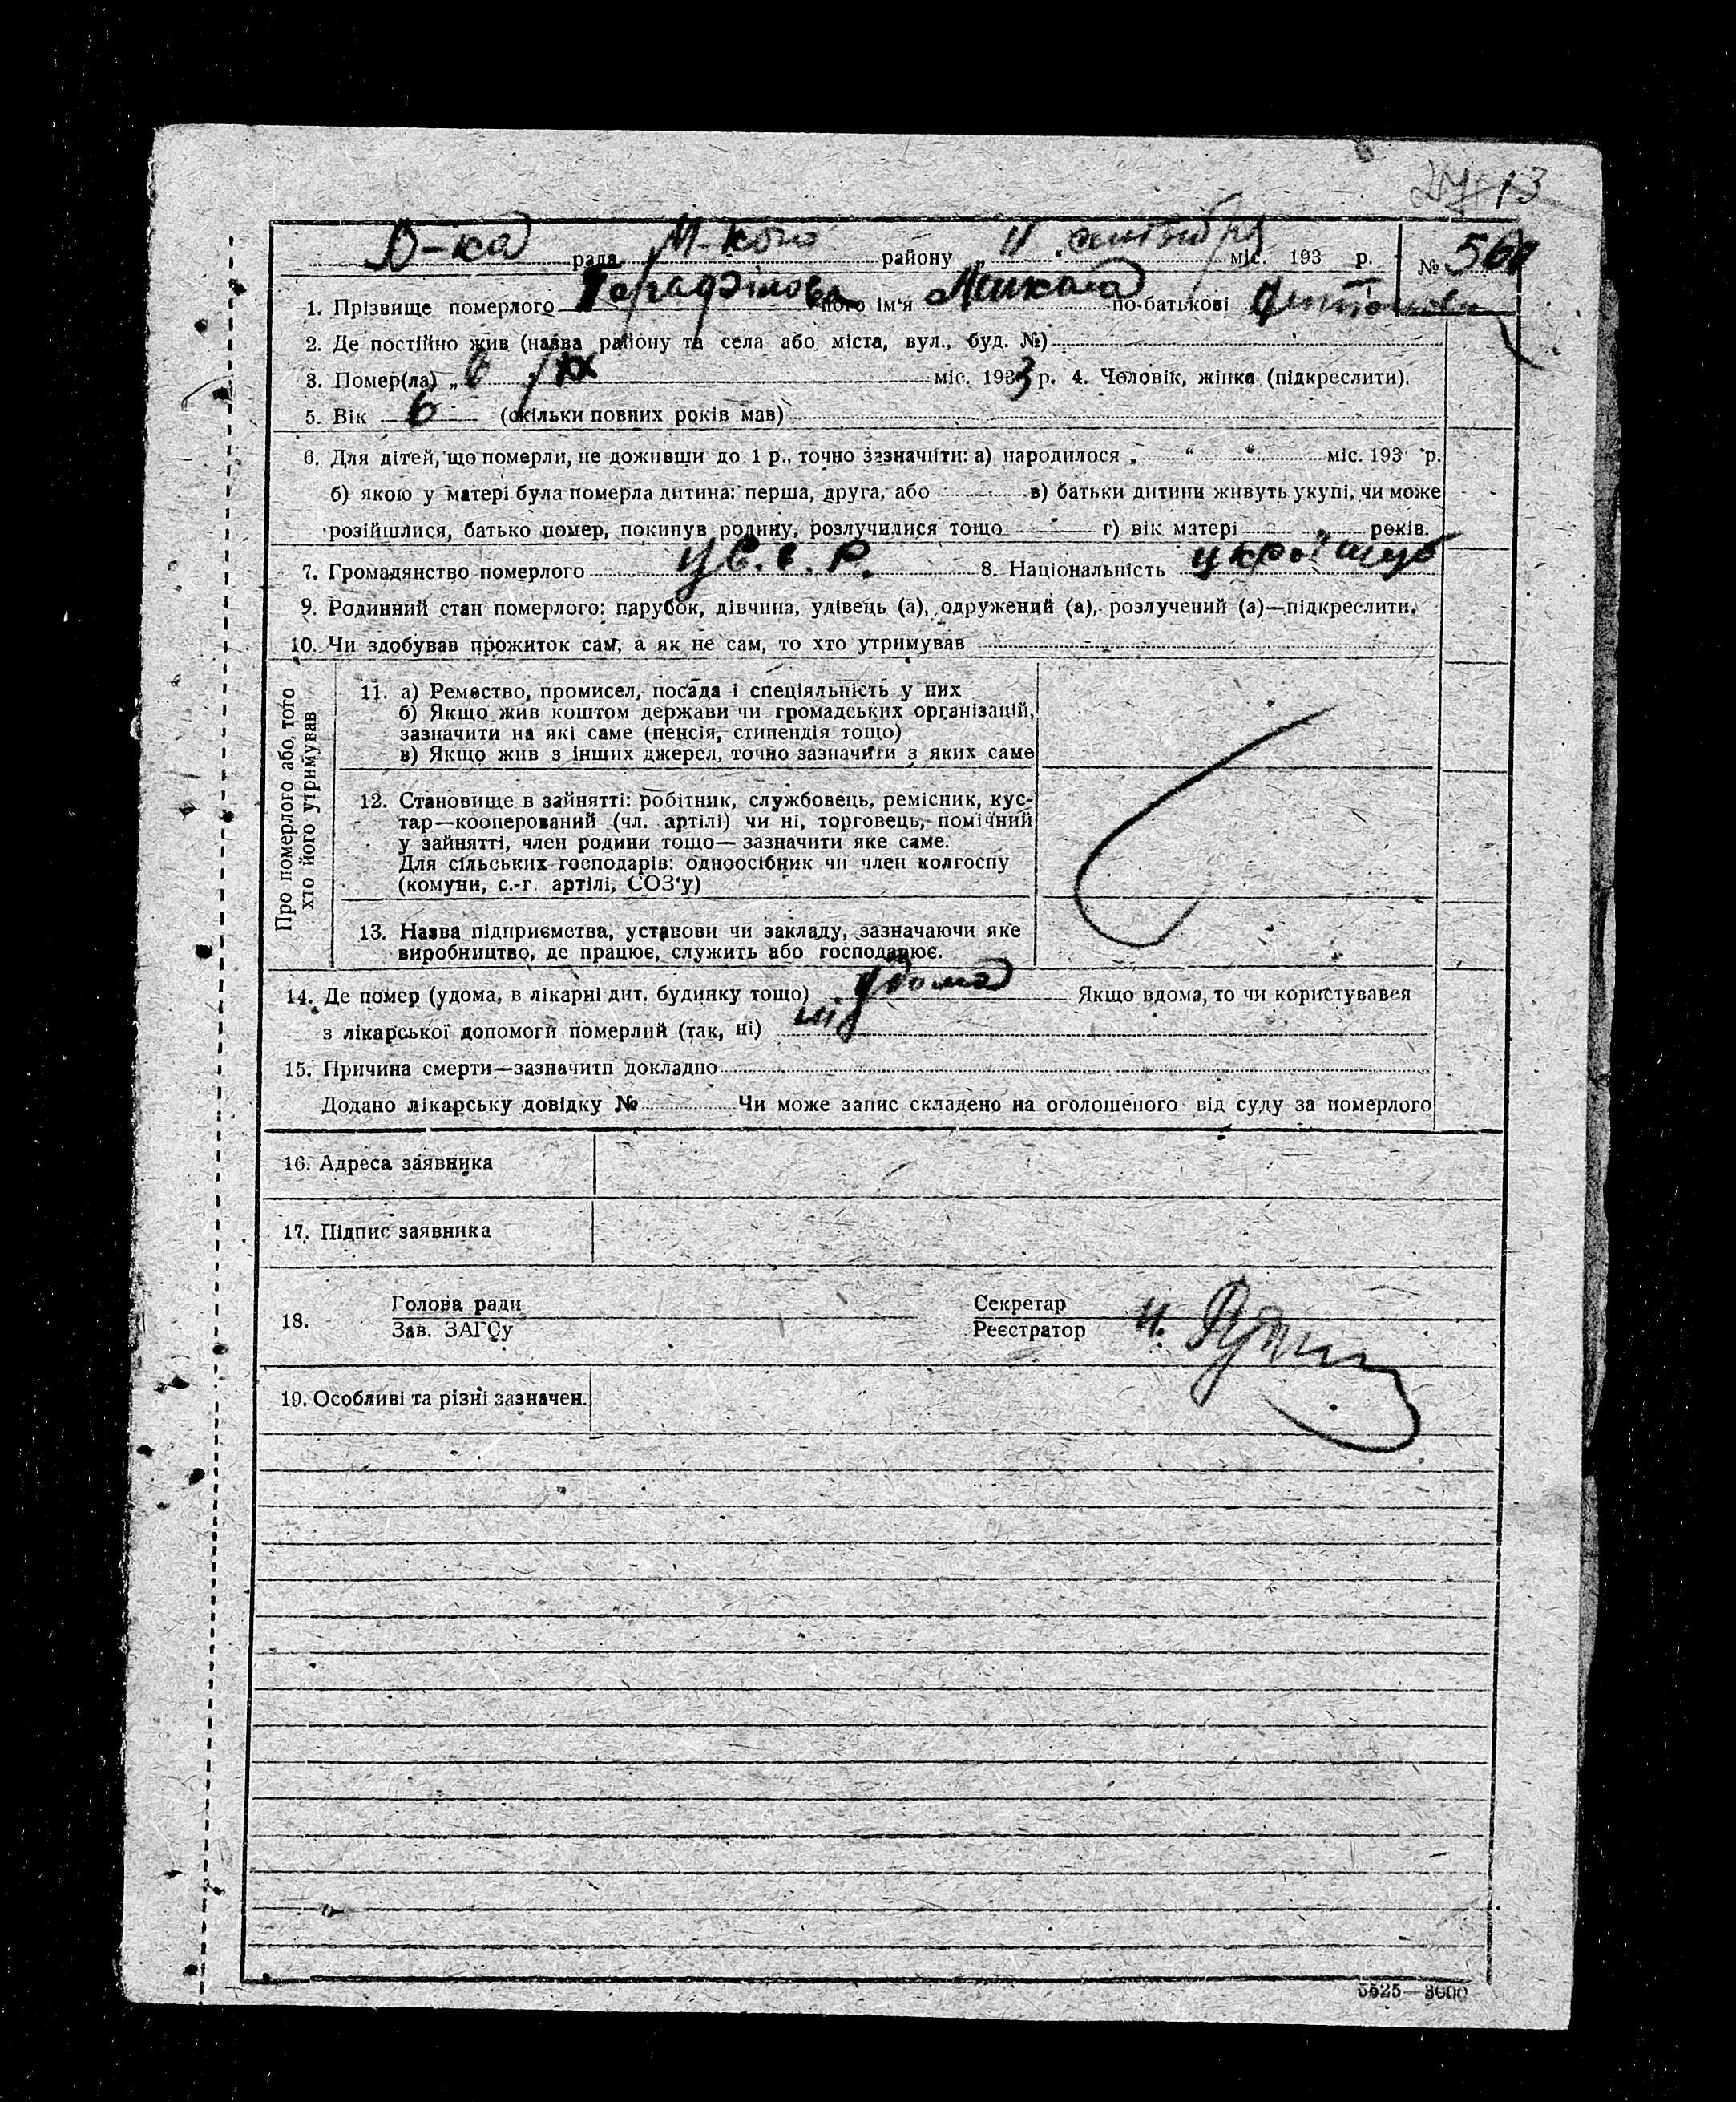 В-ка рада М-кого району „ 11 “ сентября міс. 193 р. № 560
1. Прізвище померлого його ім'я Микола по-батькові
2. Де постійно жив (назва району та села або міста, вул., буд. №)
3. Помер(ла) „ 6 /IX міс. 1933 р. 4. Чоловік, жінка (підкреслити).
5. Вік 6 (скільки повних років мав)
6. Для дітей, що померли, не доживши до 1 р., точно зазначити: а) народилося „ “ міс. 193 р.
б) якою у матері була померла дитина: перша, друга, або в) батьки дитини живуть укупі, чи може
розійшлися, батько помер, покинув родину, розлучилися тощо г) вік матері років.
7. Громадянство померлого У.С.С.Р. 8. Національність
9. Родинний стан померлого: парубок, дівчина, удівець (а), одружений (а), розлучений (а)—підкреслити.
10. Чи здобував прожиток сам, а як не сам, то хто утримував
Про померлого або того
хто його утримував
11. а) Ремество, промисел, посада і спеціяльність у них
б) Якщо жив коштом держави чи громадських організацій,
зазначити на які саме (пенсія, стипендія тощо)
в) Якщо жив з інших джерел, точно зазначити з яких саме
12. Становище в зайнятті: робітник, службовець, ремісник, кус-
тар—кооперований (чл. артілі) чи ні, торговець, помічний
у зайнятті, член родини тощо— зазначити яке саме.
Для сільських господарів: одноосібник чи член колгоспу
(комуни, с.-г. артілі, СОЗ'у)
13. Назва підприємства, установи чи закладу, зазначаючи яке
виробництво, де працює, служить або господарює.
14. Де помер (удома, в лікарні дит. будинку тощо) удома Якщо вдома, то чи користувався
з лікарської допомоги померлий (так, ні) ні
15. Причина смерти—зазначити докладно
Додано лікарську довідку № Чи може запис складено на оголошеного від суду за померлого
16. Адреса заявника
17. Підпис заявника
18. Голова ради Секретар
Зав. ЗАГСу Реєстратор
19. Особливі та різні зазначен.
5525—3000